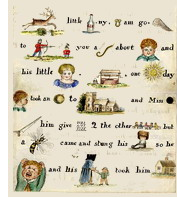 little ny. am go-
to you a about and
his little one day
took an to and Miss
him give 2 the other but
a came and stung his so he
and his took him